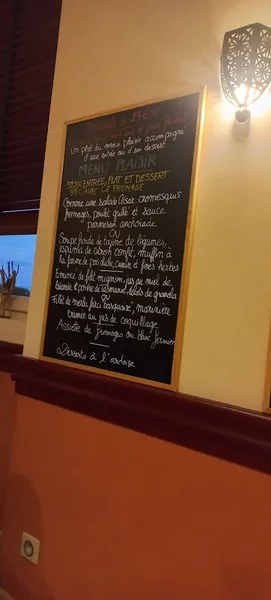 Un plat du menu plaisir accompagné
d'une entrée ou d'un dessert
MENU PLAISIR
ENTRÉE, PLAT ET DESSERT
LE FROMAGE
Comme une salade César cromesquis
fromages, poulet grillé et sauce
parmesan anchoïade
OU
Soupe froide de tajine de légumes,
espuma de citron confit, muffin à
la farine de pois chiche, cumin et fines herbes
Emincé de filet mignon, jus au miel de
et poivre de Tasmanie, éclats de granola
OU
Filet de merlu farci basquaise, marinière
crémée au jus de coquillage
Assiette de fromages ou blanc fermier
Desserts à l'ardoise